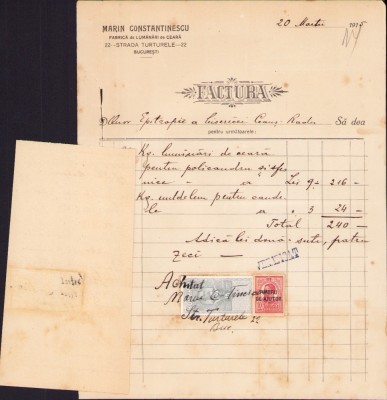 MARIN CONSTANTINESCU
FABRICĂ DE LUMÂNĂRI DE CEARĂ
22 - STRADA TURTURELE - 22
BUCUREȘTI
20 Martie 191
FACTURA
Epitropie a Bisericii Să dea
pentru următoarele:
Kg. lumînări de ceară
pentru policandru și sfeș
nice — a Lei 9 - 216 —
Kg. untdelemn pentru cande
le a „ 3 24 —
Total 240 —
Adică lei două sute, patru
zeci —
VERIFICAT
Achitat
Marin C-tinescu
DE AJUTOR
Str. Turturele 22
Buc.